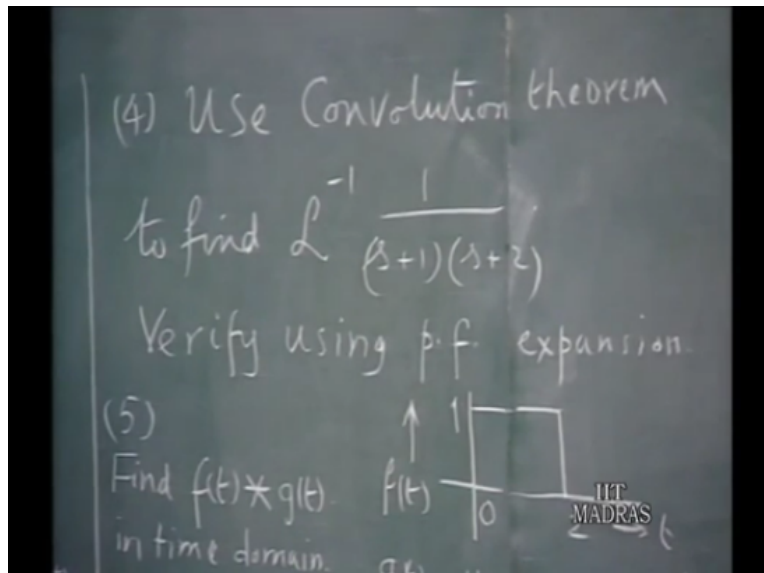 (4) Use Convolution theorem
to find L^-1 1/((s+1)(s+2))
Verify using p.f. expansion.
(5)
Find f(t)*g(t)
in time domain.
f(t)
1
0
t
IIT
MADRAS